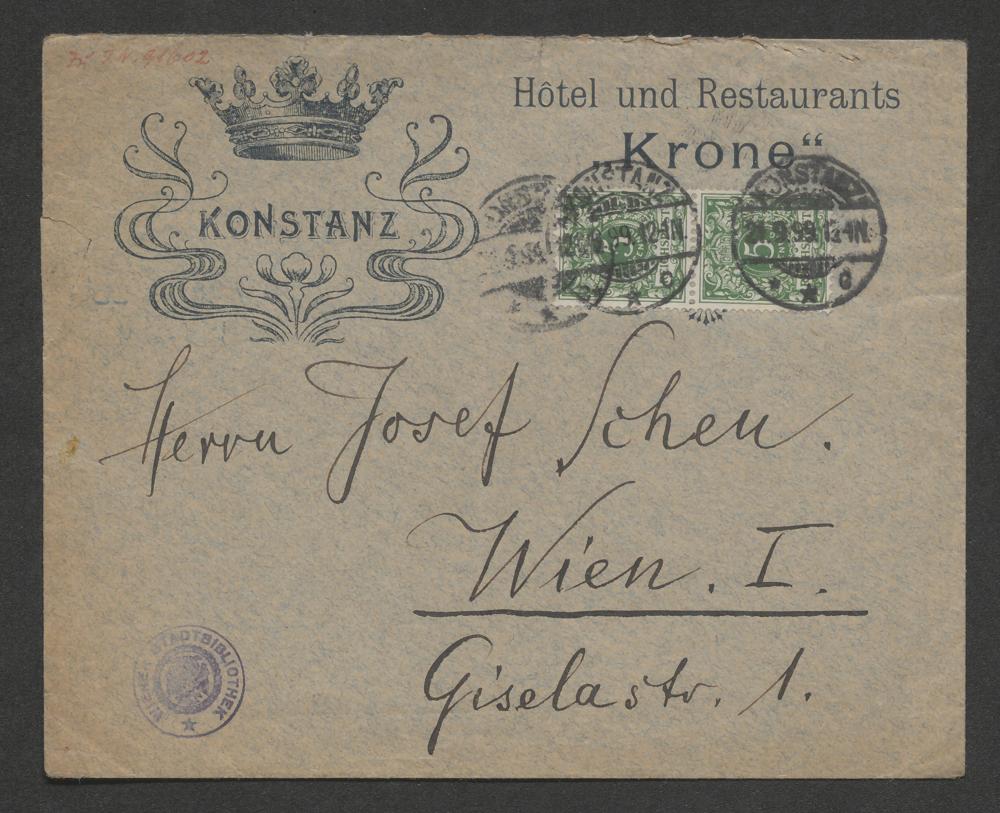 Hôtel und Restaurants
„Krone“
KONSTANZ
KONSTANZ
.99.12-1N.
c
KONSTANZ
.9.99.12-1N.
c
5
Herrn Josef Scheu.
Wien. I.
Giselastr. 1.
WIENER STADTBIBLIOTHEK